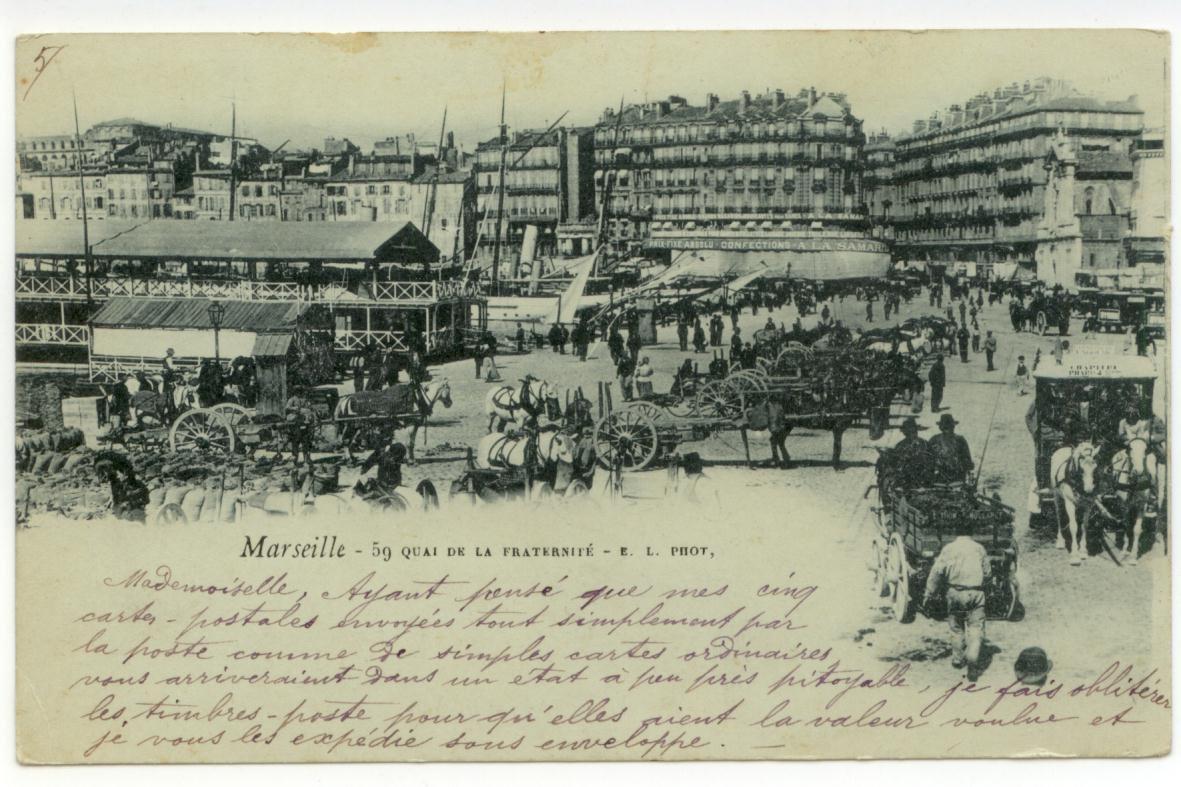 5
PRIX-FIXE ABSOLU - CONFECTIONS - A LA SAMAR
CHAPITRE
PHARO
Marseille - 59 QUAI DE LA FRATERNITÉ - E. L. PHOT,
Mademoiselle, Ayant pensé que mes cinq
cartes-postales envoyées tout simplement par
la poste comme de simples cartes ordinaires,
vous arriveraient dans un état à peu près pitoyable, je fais oblitérer
les timbres-poste pour qu'elles aient la valeur voulue et
je vous les expédie sous enveloppe. —